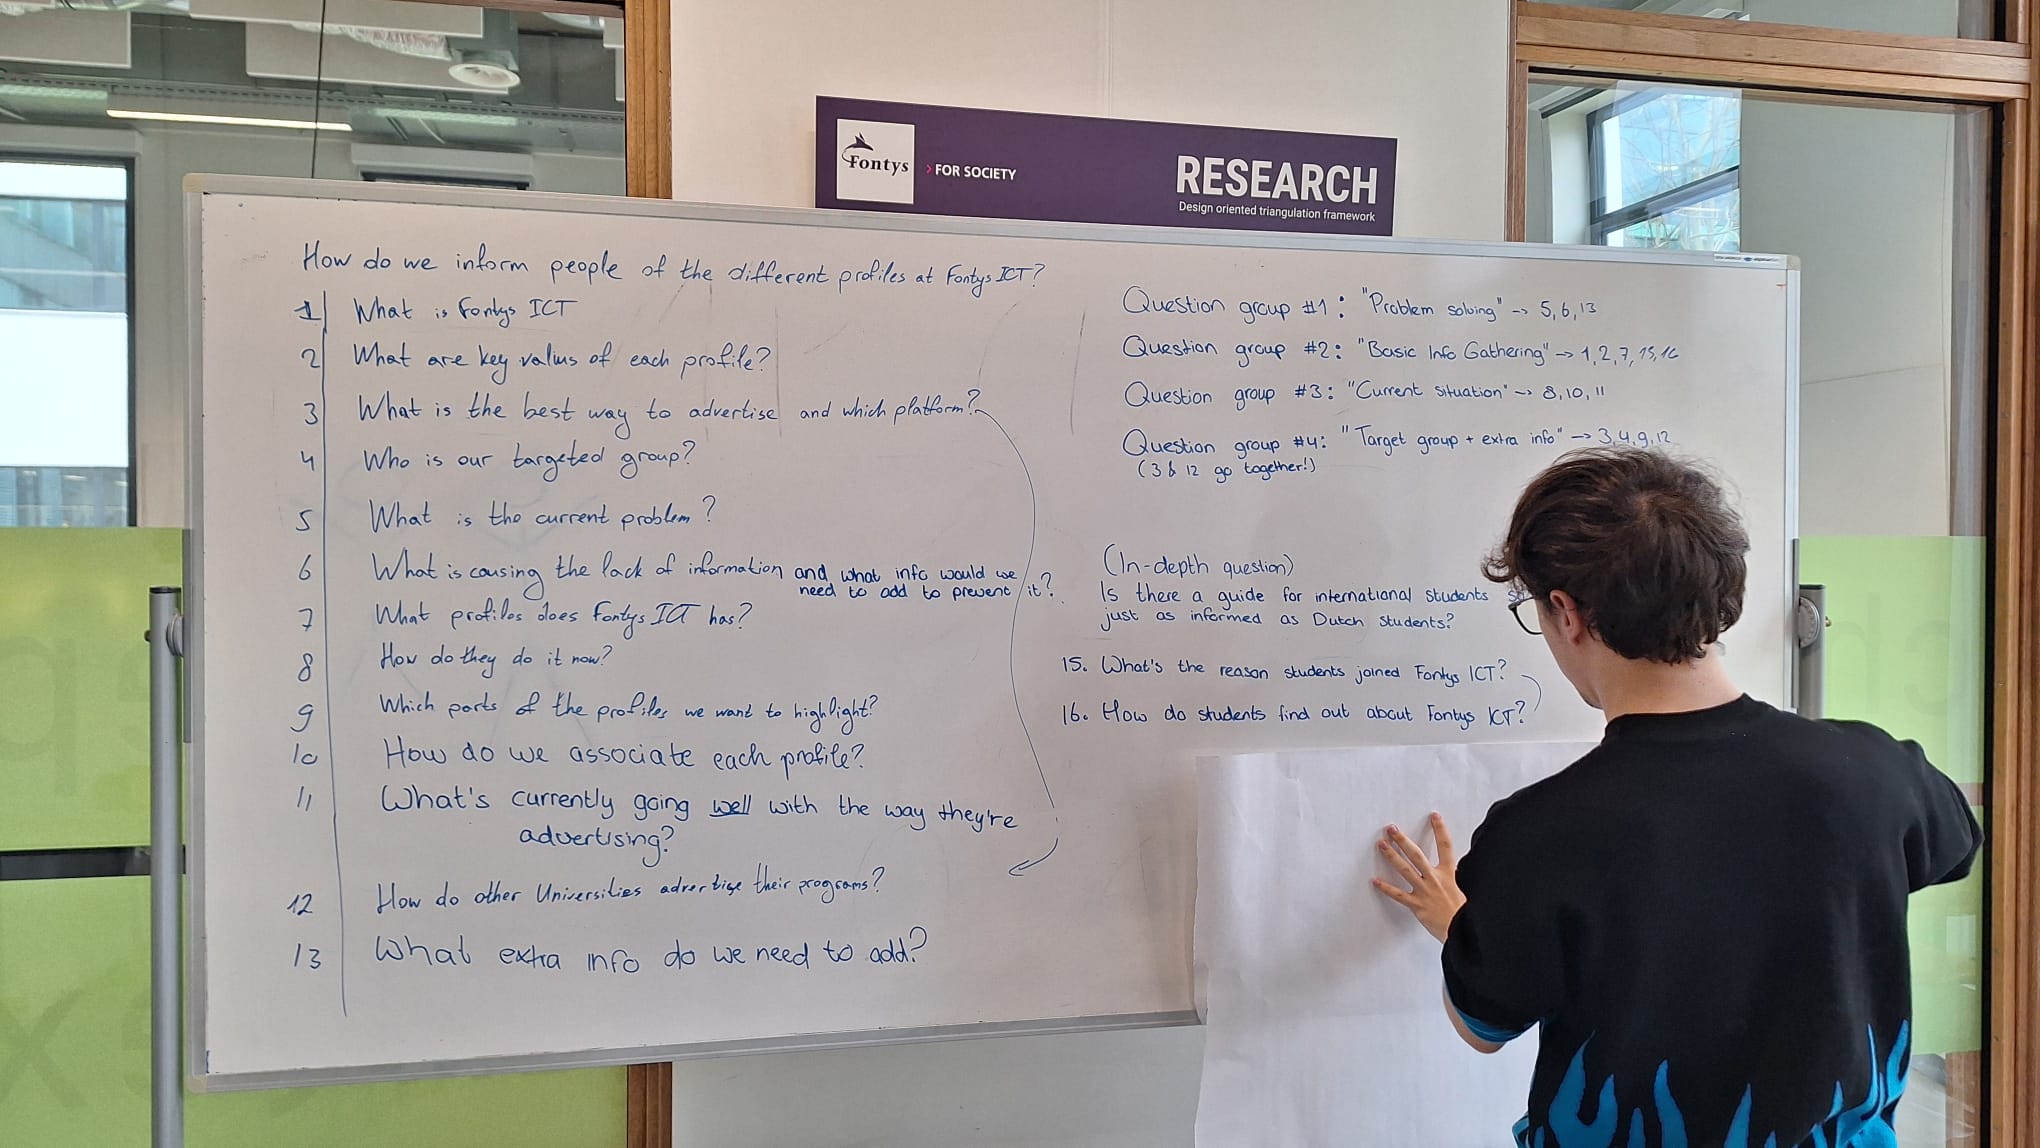 Fontys
> FOR SOCIETY
RESEARCH
Design oriented triangulation framework
How do we inform people of the different profiles at Fontys ICT?
1 What is Fontys ICT
2 What are key values of each profile?
3 What is the best way to advertise and which platform?
4 Who is our targeted group?
5 What is the current problem?
6 What is causing the lack of information and what info would we
need to add to prevent it?
7 What profiles does Fontys ICT has?
8 How do they do it now?
9 Which parts of the profiles we want to highlight?
10 How do we associate each profile?
11 What's currently going well with the way they're
advertising?
12 How do other Universities advertise their programs?
13 What extra info do we need to add?
Question group #1: "Problem solving" -> 5, 6, 13
Question group #2: "Basic Info Gathering" -> 1, 2, 7, 15, 16
Question group #3: "Current situation" -> 8, 10, 11
Question group #4: "Target group + extra info" -> 3, 4, 9, 12
(3 & 12 go together!)
(In-depth question)
Is there a guide for international students
just as informed as Dutch students?
15. What's the reason students joined Fontys ICT?
16. How do students find out about Fontys ICT?